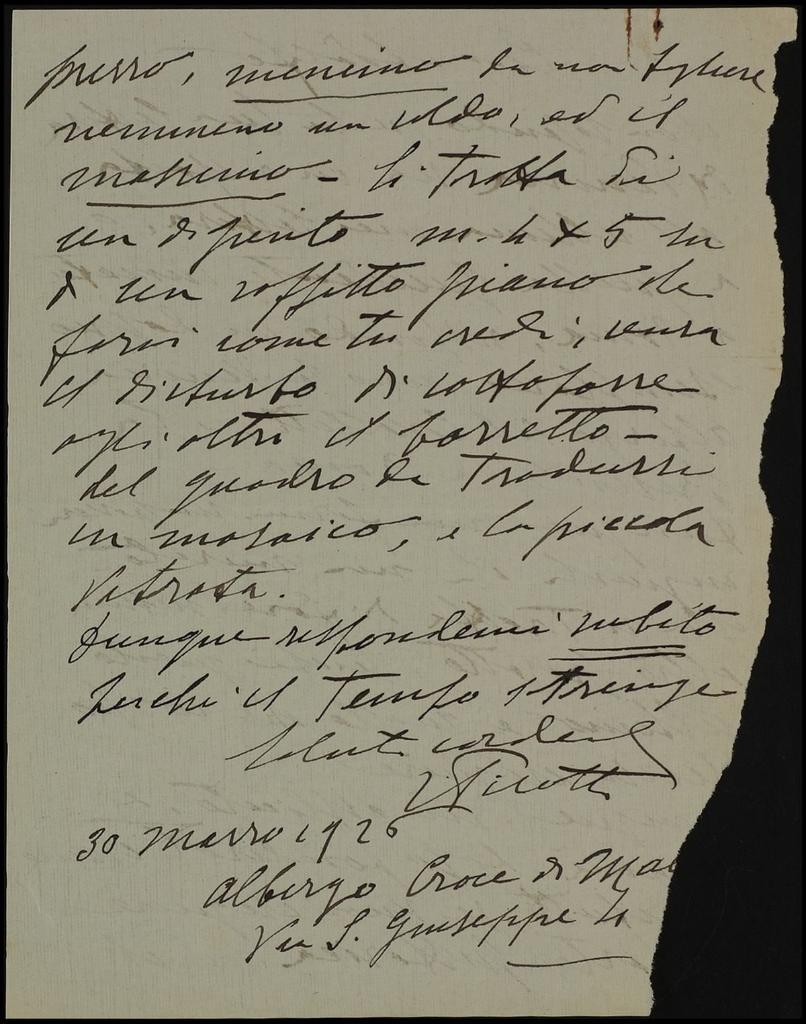 prezzo, minimo da non togliere
nemmeno un soldo, ed il
massimo - Si tratta di
un dipinto m. 4 x 5 su
di un soffitto piano da
farsi come tu credi, senza
il disturbo di sottoporre
agli altri il bozzetto -
del quadro da tradursi
in mosaico, e la piccola
vetrata.
Dunque rispondemi subito
perchè il tempo stringe
Saluti cordiali
30 Marzo 1926
Albergo Croce di Mal
Via S. Giuseppe